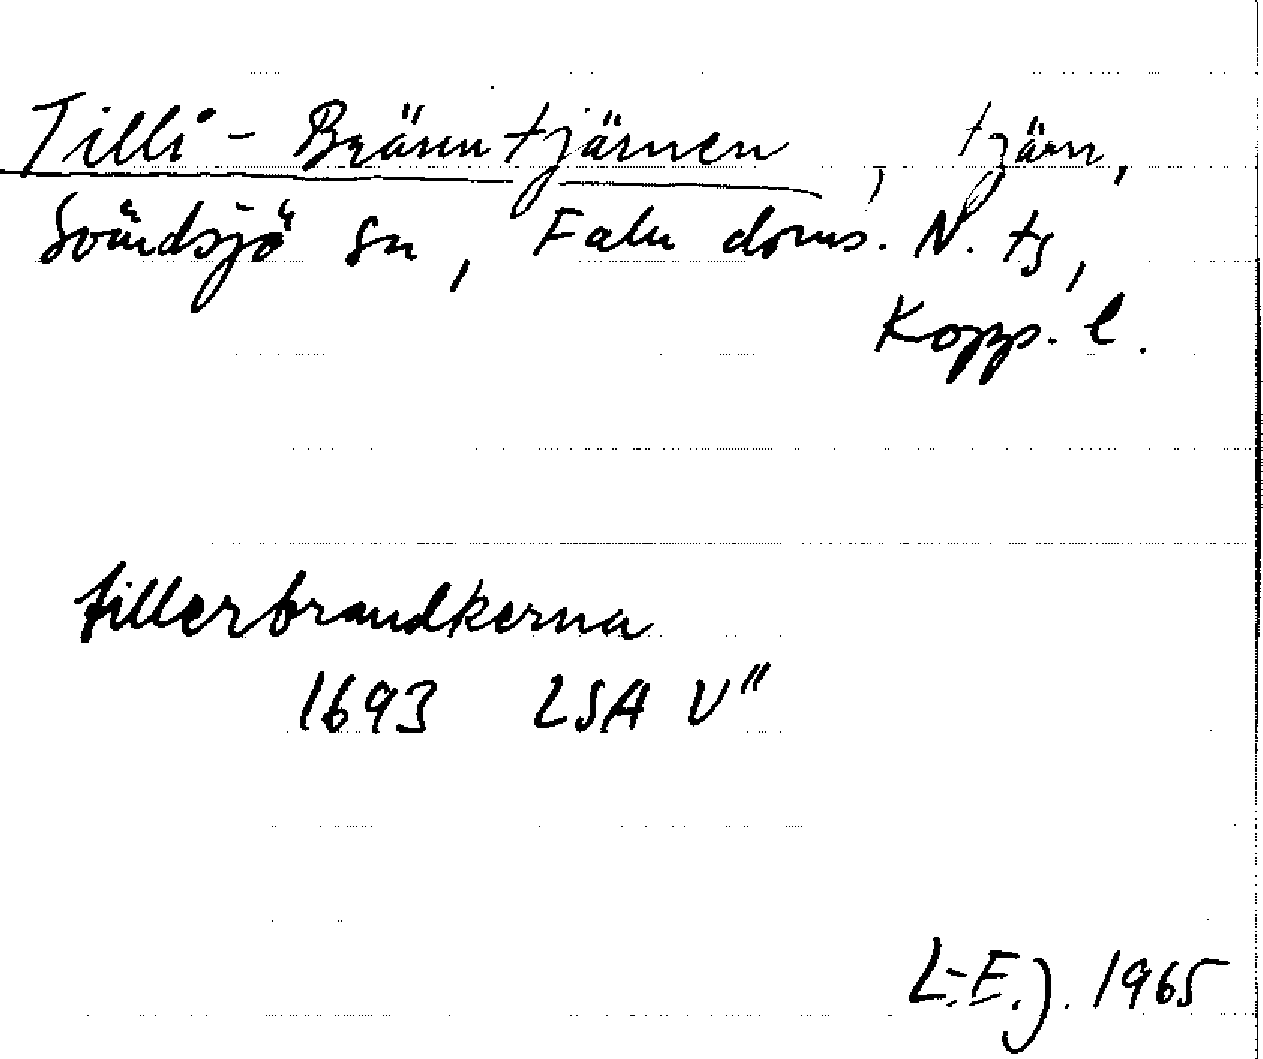 Tilli-Bränntjärnen, tjärn,
Svärdsjö sn, Falu doms. N. ts,
Kopp. l.
tillerbrandkerna
1693 LSA V"
L-E. J. 1965